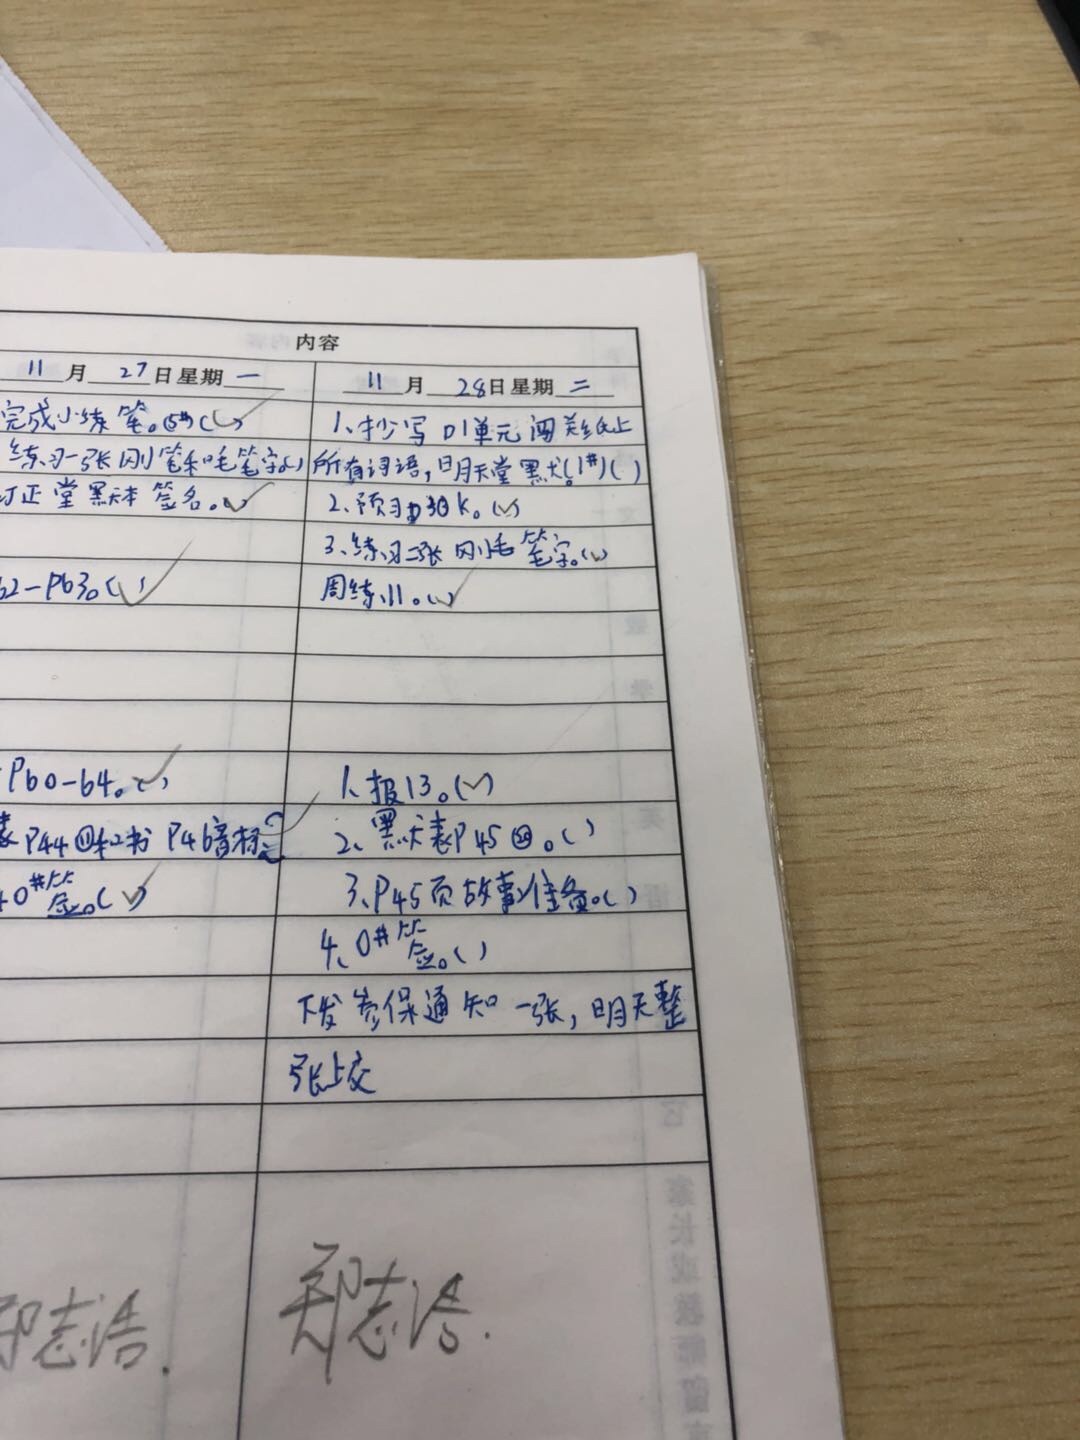 内容
11月27日星期一
11月28日星期二
完成小练笔。(5#)(✓)
练习一张刚笔和毛笔字(✓)
订正堂默本签名。(✓)
62-P63。(✓)
P60-64。(✓)
表P44⑪和书P46音标
0#签。(✓)
郑志浩.
1、抄写 01单元闯关纸上
所有词语,明天堂默。(1#)( )
2、预习 30k。(✓)
3、练习二张刚毛笔字。(✓)
周练11。(✓)
1、报13。(✓)
2、默表P45 。( )
3、P45页故事准备。( )
4、0#签。( )
下发参保通知一张,明天整
张上交
郑志浩.